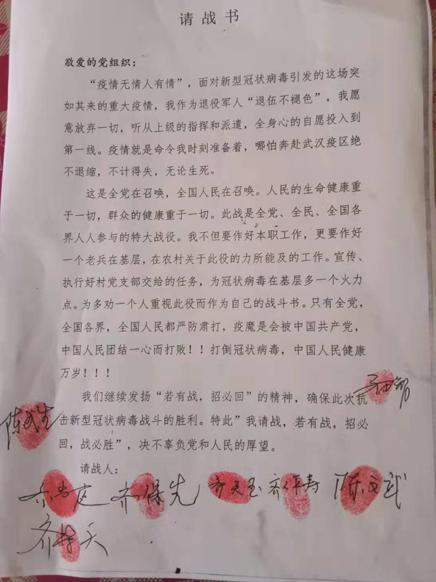 请战书
敬爱的党组织：
“疫情无情人有情”，面对新型冠状病毒引发的这场突
如其来的重大疫情，我作为退役军人“退伍不褪色”，我愿
意放弃一切，听从上级的指挥和派遣，全身心的自愿投入到
第一线。疫情就是命令我时刻准备着，哪怕奔赴武汉疫区绝
不退缩，不计得失，无论生死。
这是全党在召唤，全国人民在召唤。人民的生命健康重
于一切，群众的健康重于一切。此战是全党、全民、全国各
界人人参与的特大战役。我不但要作好本职工作，更要作好
一个老兵在基层，在农村关于此役的力所能及的工作。宣传、
执行好村党支部交给的任务，为冠状病毒在基层多一个火力
点。为多劝一个人重视此役而作为自己的战斗书。只有全党，
全国各界，全国人民都严防肃打，疫魔是会被中国共产党，
中国人民团结一心而打败！！打倒冠状病毒，中国人民健康
万岁！！！
我们继续发扬“若有战，招必回”的精神，确保此次抗
击新型冠状病毒战斗的胜利。特此”我请战，若有战，招必
回，战必胜”，决不辜负党和人民的厚望。
请战人：
齐保先 陈文武